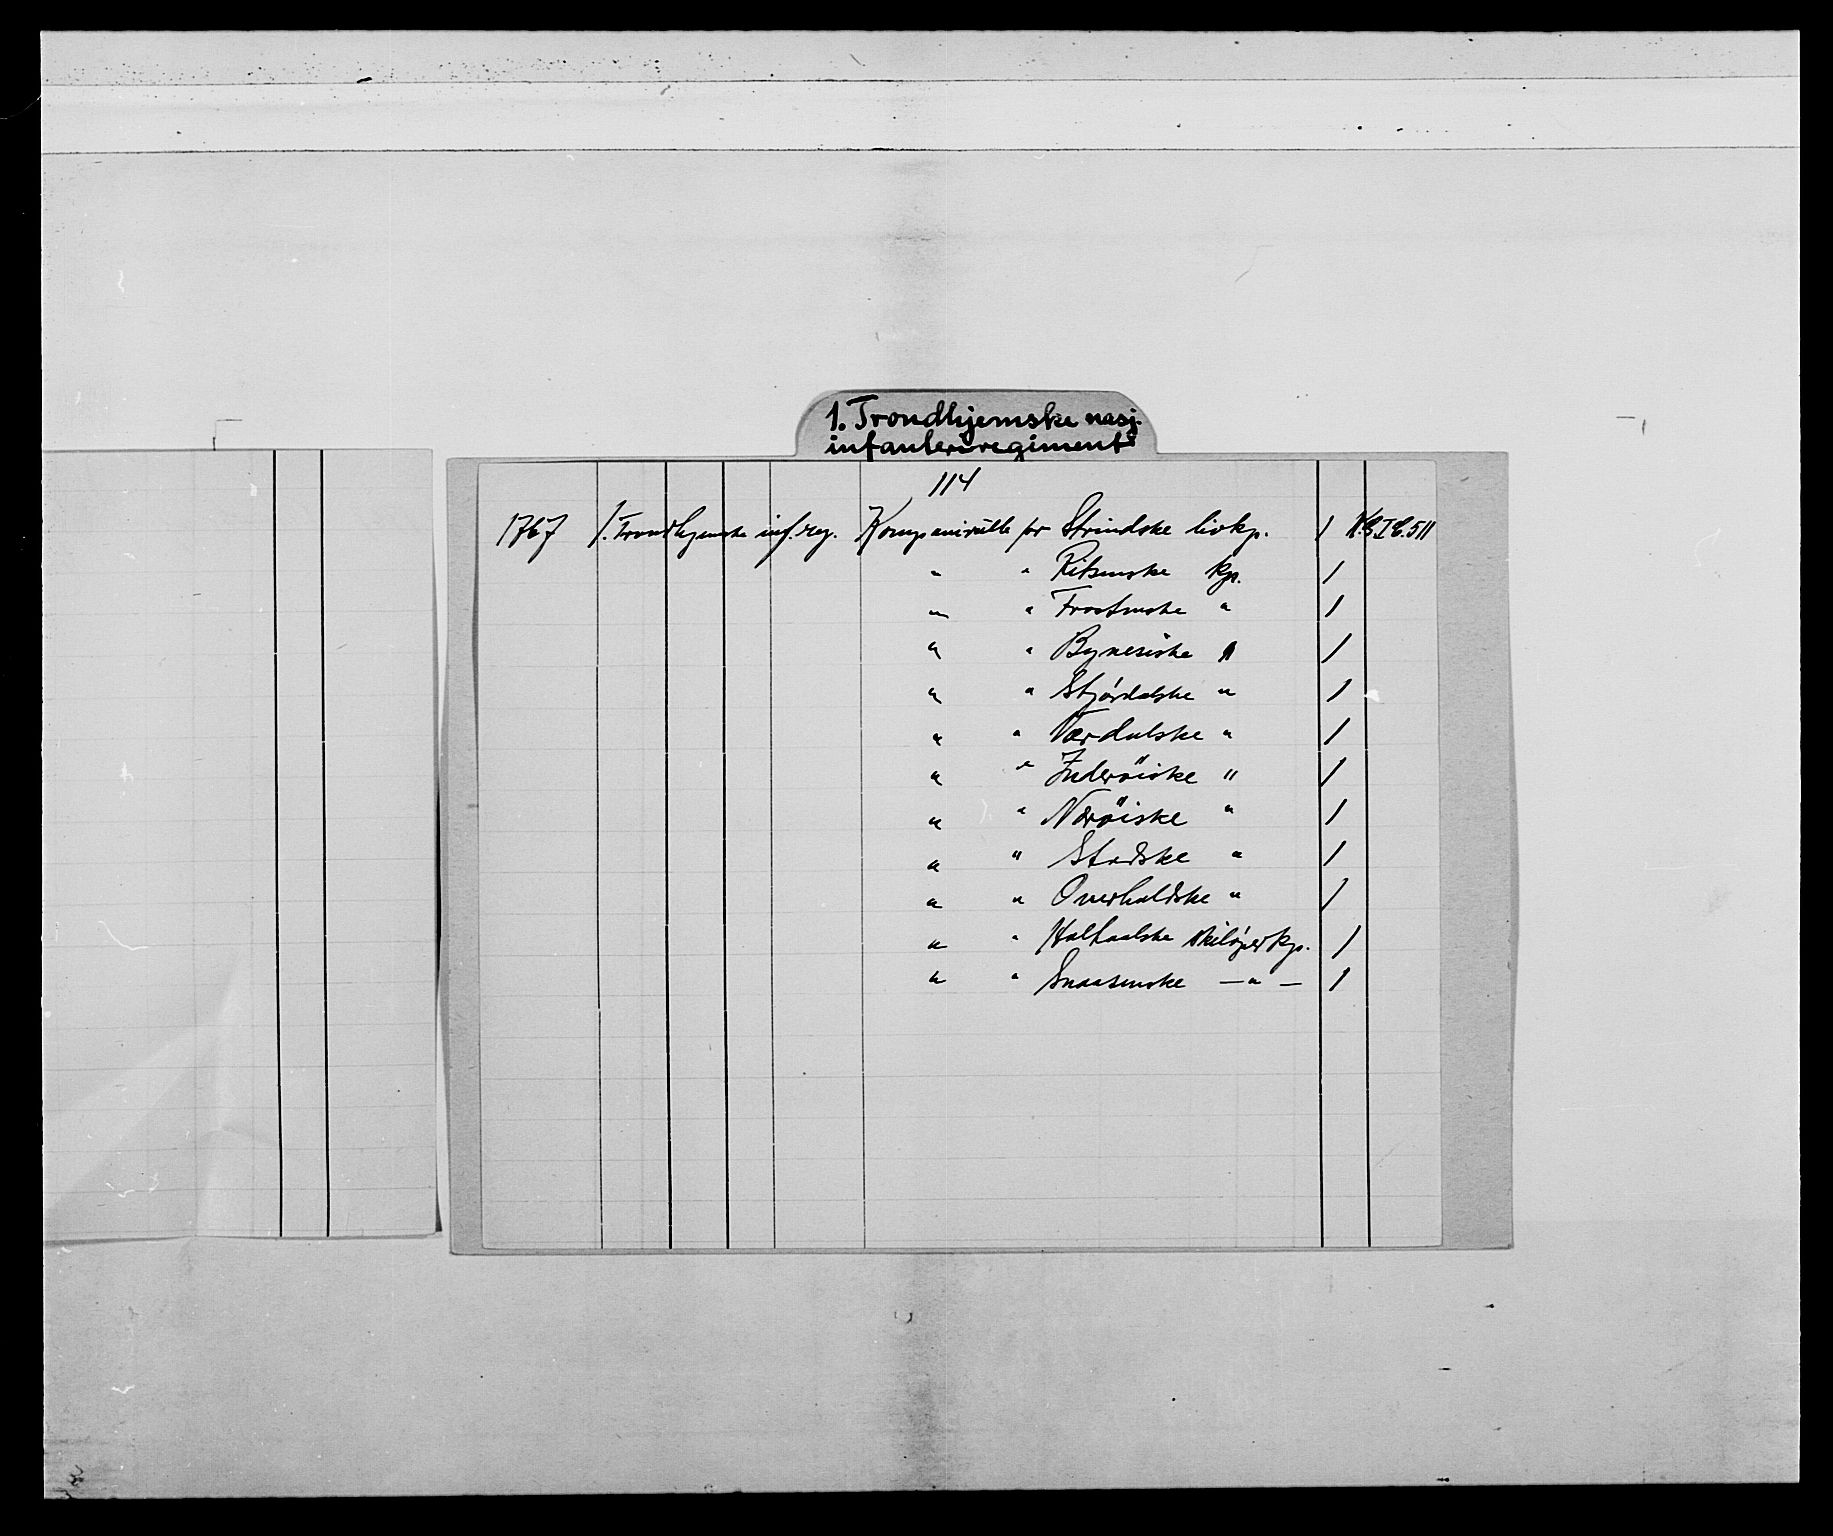 1. Trondhjemske nasj.
infanteriregiment
114
1767 1. Trondhjemske inf. reg. Kompanirulle for Strindske livkp. 1
" " Ritsenske kp. 1
" " Frostenske " 1
" " Bynesiske " 1
" " Stjördalske " 1
" " Værdalske " 1
" " Inderöiske " 1
" " Næröiske " 1
" " Stodske " 1
" " Overhaldske " 1
" " Holtaalske skilöperkp. 1
" " Snaasenske — " — 1